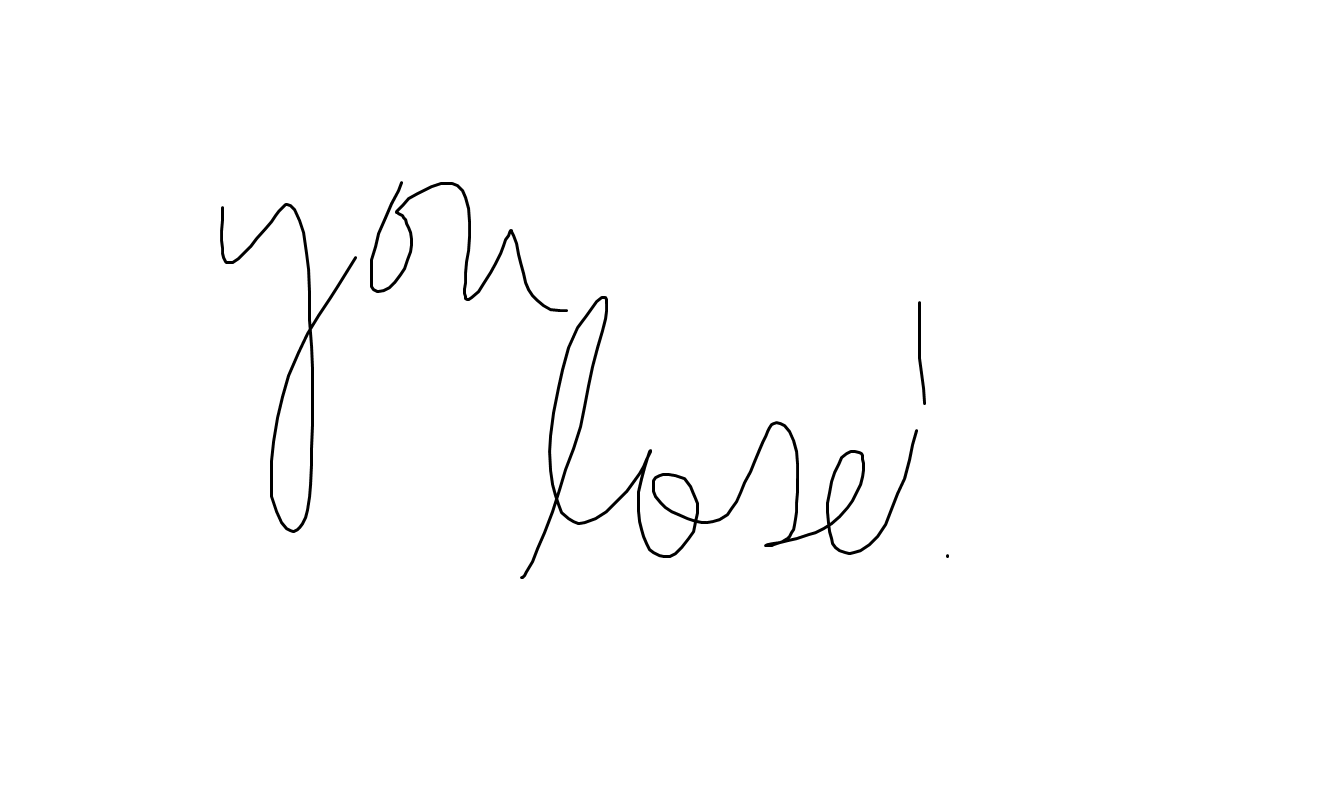 you
lose!